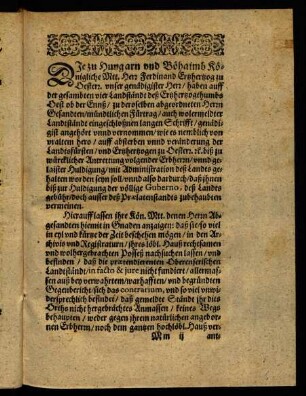 Die zu Hungarn vnd Böhaimb Kö-
nigliche Mtt. Herr Ferdinand Ertzhertzog zu
Oesterr. vnser genädigister Herr / haben auff
der gesambten vier Landständ deß Ertzhertzogthumbs
Oest. ob der Ennß / zu deroselben abgeordneten Herrn
Gesandten / mündtlichen Fürtrag / auch
Landständ eingeschlossnen langen Schrifft / genädi-
gist angehört vnnd vernommen / wie es nemblich vor
vralten hero / auff absterben vnnd veränderung der
Landtsfürsten / vnd Ertzhertzogen zu Oesterr. biß zu
würcklicher Antrettung volgender Erbherrn / vnnd ge-
laister Huldigung / mit Administration deß Landts ge-
halten worden seyn soll / vnnd also dardurch / daß ihnen
biß zur Huldigung der völlige Guberno, deß Landes
gebühr / doch ausser deß Prælatenstandes zubehaubten
vermeinen.
Hierauff lassen ihre Kön. Mtt. denen Herrn Ab-
gesandten hiemit in Gnaden anzaigen: daß sie / so viel
in eyl vnd kürtze der Zeit beschehen mögen / in den Ar-
chivis vnd Registraturn / ihres löbl. Hauß rechtsamen
vnd wolhergebrachten Posseß nachsuchen lassen / vnd
befunden / daß die prætendierenten Oberenserischen
Landständ / in facto & jure nicht fundiert / allermas-
sen auß bey verwahrtem / warhafften / vnd begründten
Gegenbericht sich das contrarium, vnd so viel vnwi-
dersprechlich befindet / daß gemeldte Ständ ihr diß
Orths nicht hergebrachtes Anmassen / keines Wegs
behaupten / weder gegen ihrem natürlichen angebor-
nen Erbherrn / noch dem gantzen hochlöbl. Hauß ver-
Mm ij ant/